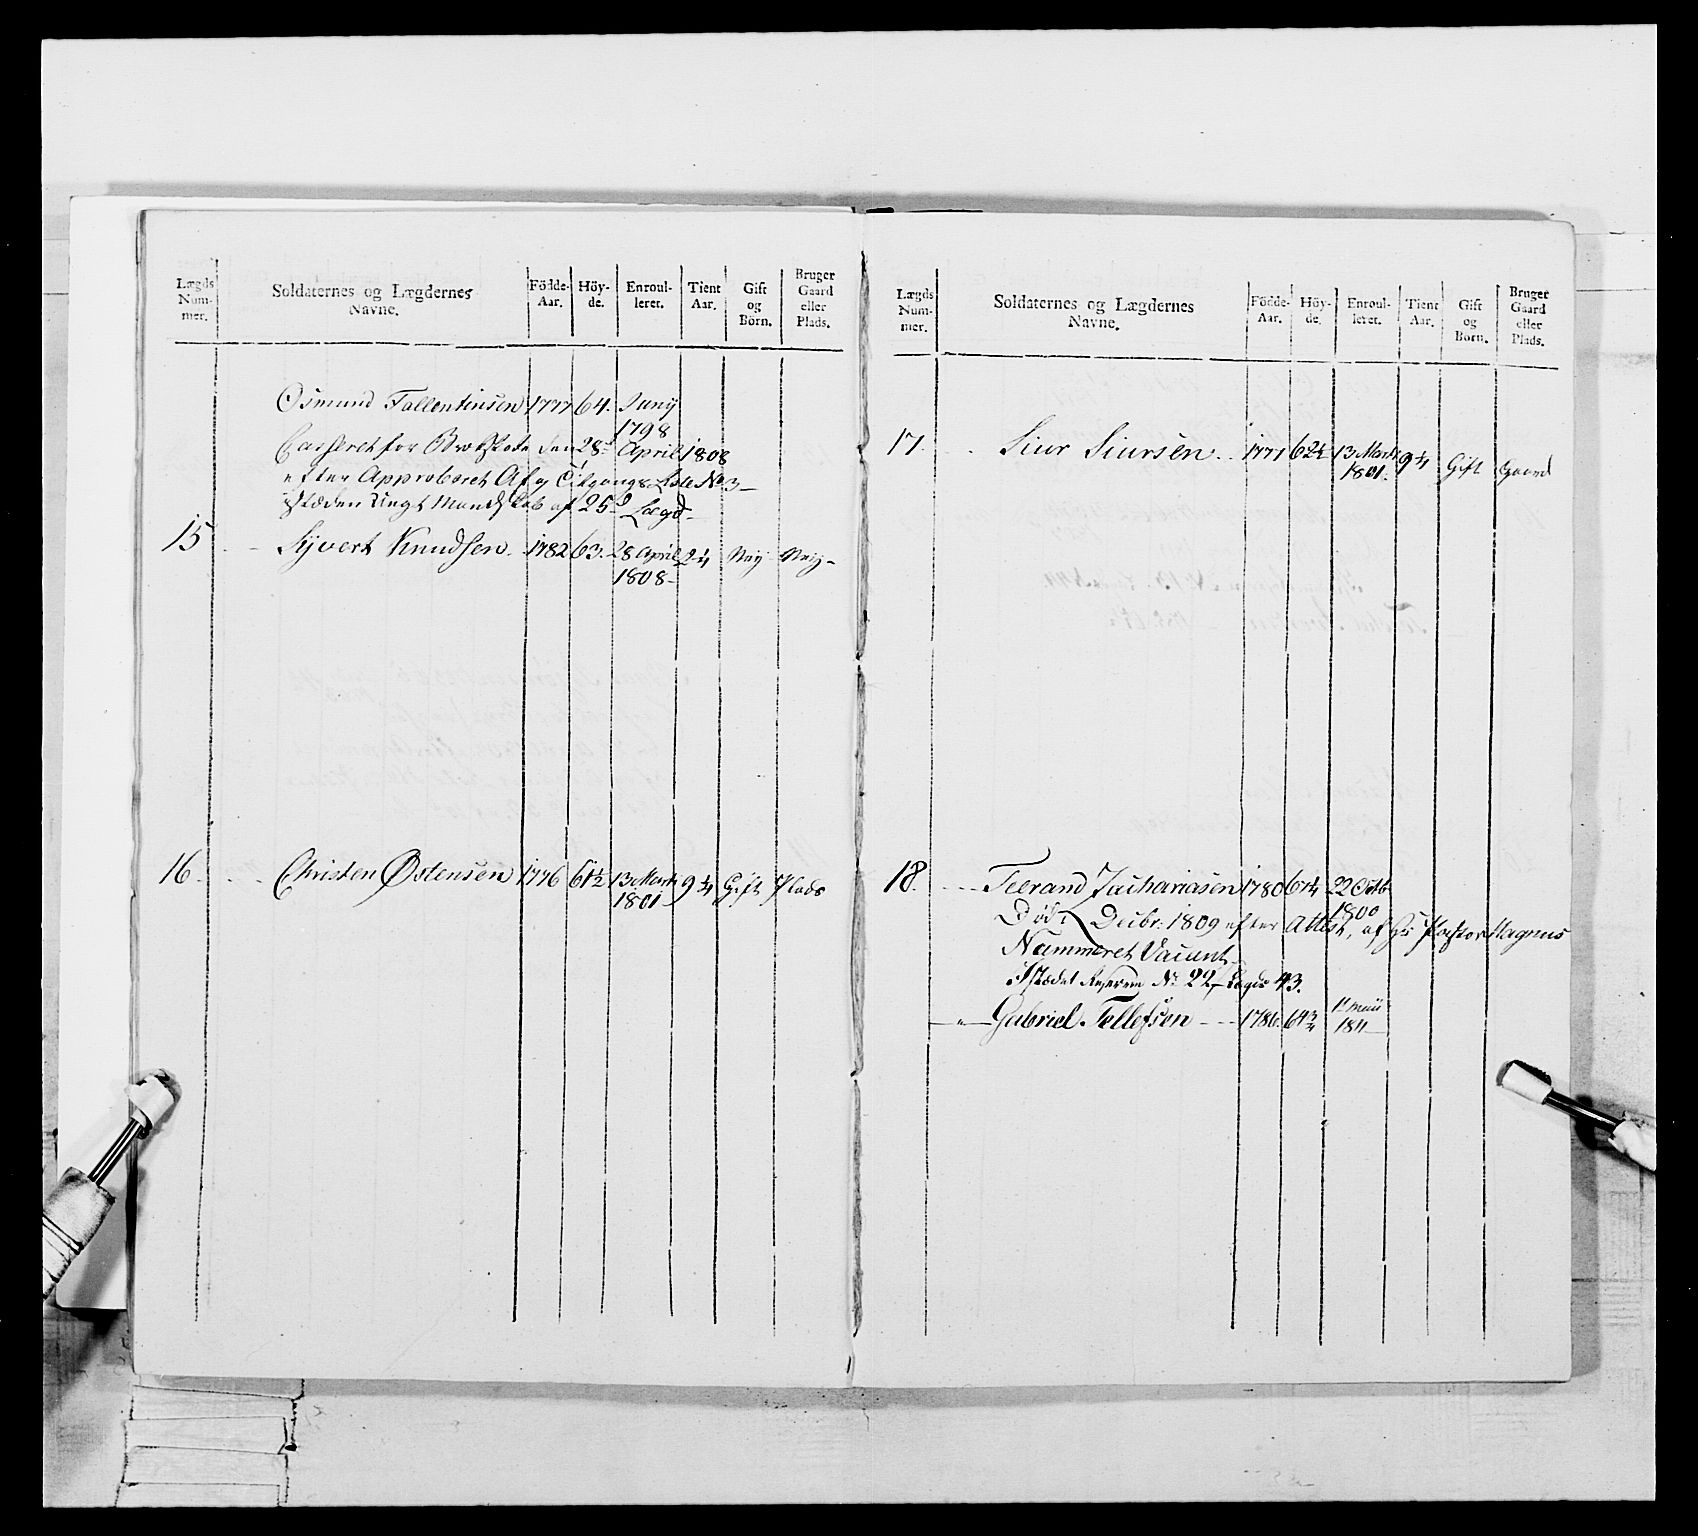 Lægds Num- mer. Soldaternes og Lægdernes Navne. Födde- Aar. Höy- de. Enroul- leret. Tient Aar. Gift og Börn. Bruger Gaard eller Plads.
Osmund Tallentinsen 1777 64. Juny 1798
Casseret for Brokskade den 28de April 1808
efter Approberet Af og Tilgangs Liste No 3
istæden Ungt Mandskab af 25de Lægd
15 Syvert Knudsen 1782 63. 28 April 1808 2 1/4 Ney Ney
16 Christen Østensen 1776 61 1/2 13 Marti 1801 9 1/4 Gift Plads
Lægds Num- mer. Soldaternes og Lægdernes Navne. Födde- Aar. Höy- de. Enroul- leret. Tient Aar. Gift og Börn. Bruger Gaard eller Plads.
17. Siur Siursen 1771 62 1/2 13 Marti 1801. 9 1/4 Gift Gaard
18. Teerand Zachariasen 1780 61 1/4 22 Octb 1800
Död i Decbr: 1809 efter Attest, af Hr Pastor Magnus
Nummeret Vacant
I stædet Reserven No 22, Lægds 43.
" Gabriel Tellefsen 1786. 64 3/4 1te maii 1811